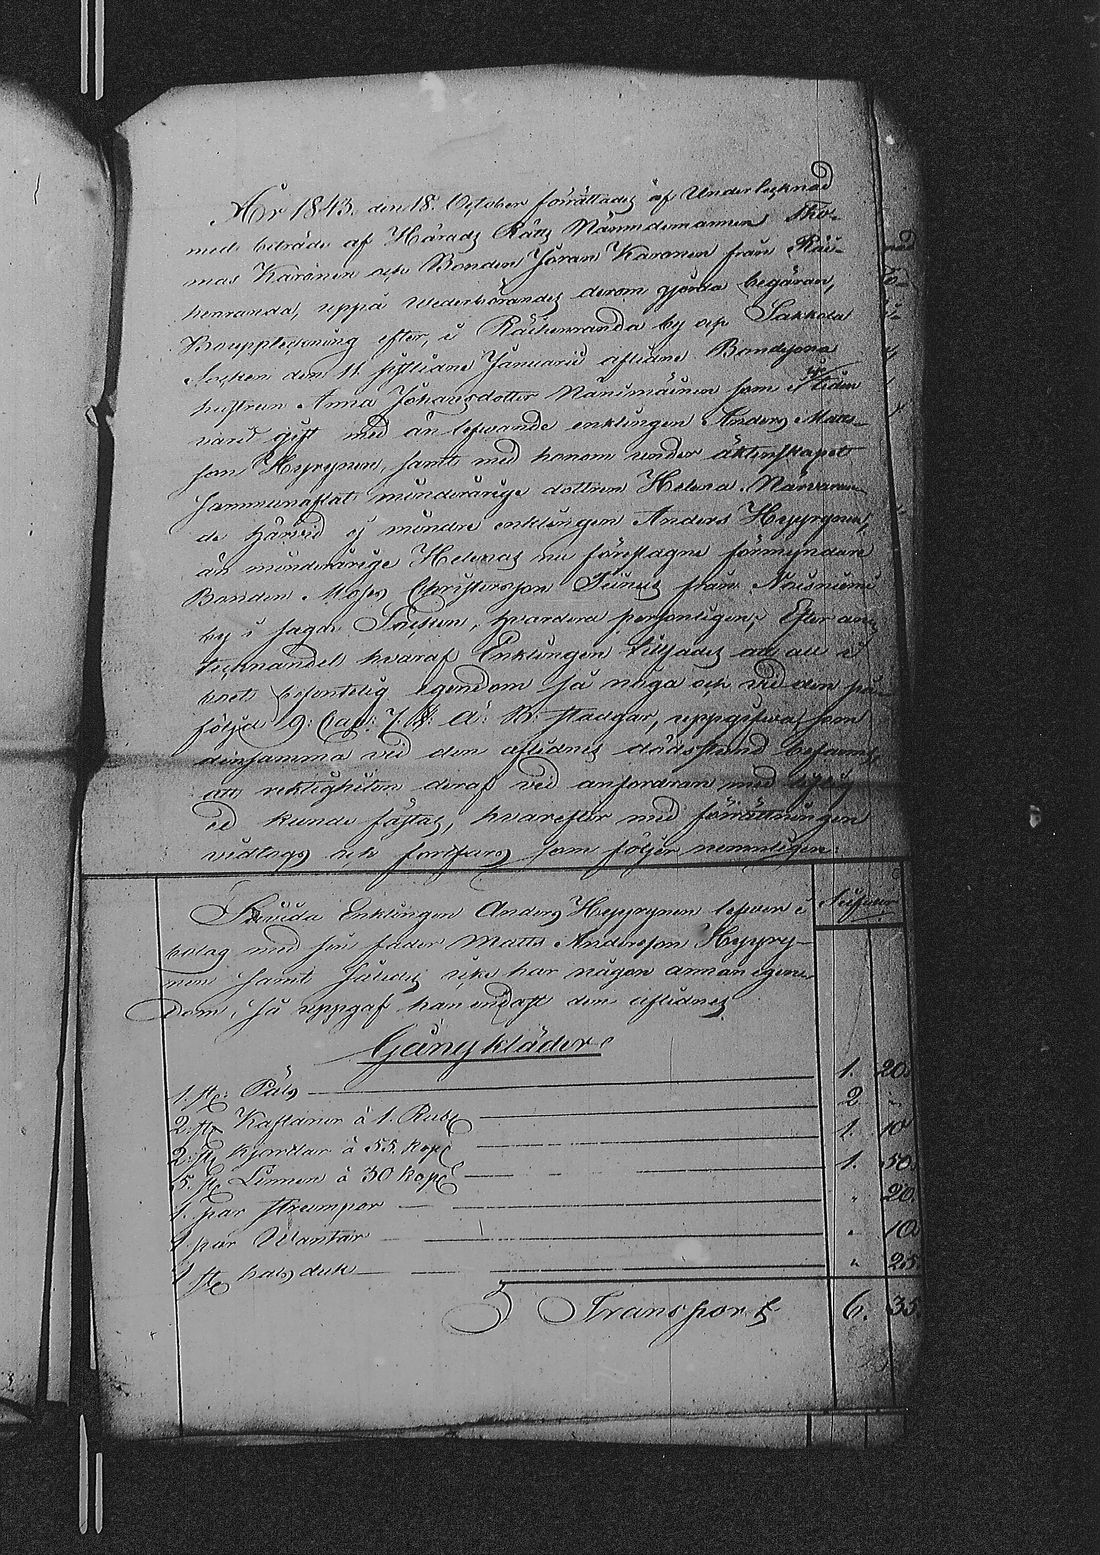 År 1843. den 18. October förrättades af Undertecknad
med biträde af Härads Rätts Nämndemannen Tho-
mas Karonen och Bonden Jöran Karonen från Räi-
henranda, uppå Wederbörandes derom gjorda begäran,
Bouppteckning efter, i Räihenranda by och Sakkola
Socken den 11. sistlidne Januarii aflidne Bondesona
hustrun Anna Johansdotter som i tiden
varit gift med än lefwande enklingen Anders Matts-
son Hyyrynen, samt med honom under äktenskapet
sammanaflat minderårige dottren Helena. Närvaran-
de härvid ej mindre enklingen Anders Hyyrynen,
än minderårige Helenas nu föreslagne förmyndare
Bonden Moses Christersson från
by i sagde Socken, hvardera personligen; Efter an-
tecknandet hvaraf Enklingen tillsades att all i
boet befintelig egendom så noga och vid den på-
följd 9: Cap: 7. §: Ä: B: stadgar, uppgifwa som
densamma vid den aflidnes dödsstund befanns,
att riktigheten deraf vid anfordran med liflig
ed kunde fästas, hvarefter med förrättningen
vidtogs och fortfors som följer nemnligen:
Såvida Enklingen Anders Hyyrynen lefwer i Silfwer
bolag med sin fader Matts Andersson Hyyry-
nen samt således icke har någon annan egen-
dom, så uppgaf han endast den aflidnes
Gångkläder
1. st: Päls 1. 20.
2. st Kaftaner à 1. Rub 2 -
2. st Kjortlar à 55. kop 1. 10
5. st Linnen à 30 kop 1. 50.
1. par strumpor " 20.
1 par Wantar " 10
1 st halsduk " 25.
Transport 6. 35.